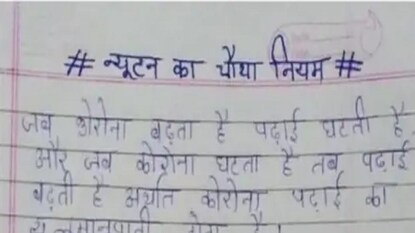 # न्यूटन का चौथा नियम #
जब कोरोना बढ़ता है पढ़ाई घटती है
और जब कोरोना घटता है तब पढ़ाई
बढ़ती है अर्थात कोरोना पढ़ाई का